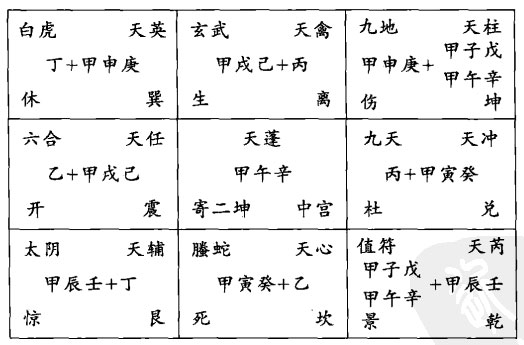 白虎 天英
丁+甲申庚
休 巽
玄武 天禽
甲戌己+丙
生 离
九地 天柱
甲申庚+甲子戊
甲午辛
伤 坤
六合 天任
乙+甲戌己
开 震
天蓬
甲午辛
寄二坤 中宫
九天 天冲
丙+甲寅癸
杜 兑
太阴 天辅
甲辰壬+丁
惊 艮
螣蛇 天心
甲寅癸+乙
死 坎
值符 天芮
甲子戊
甲午辛+甲辰壬
景 乾